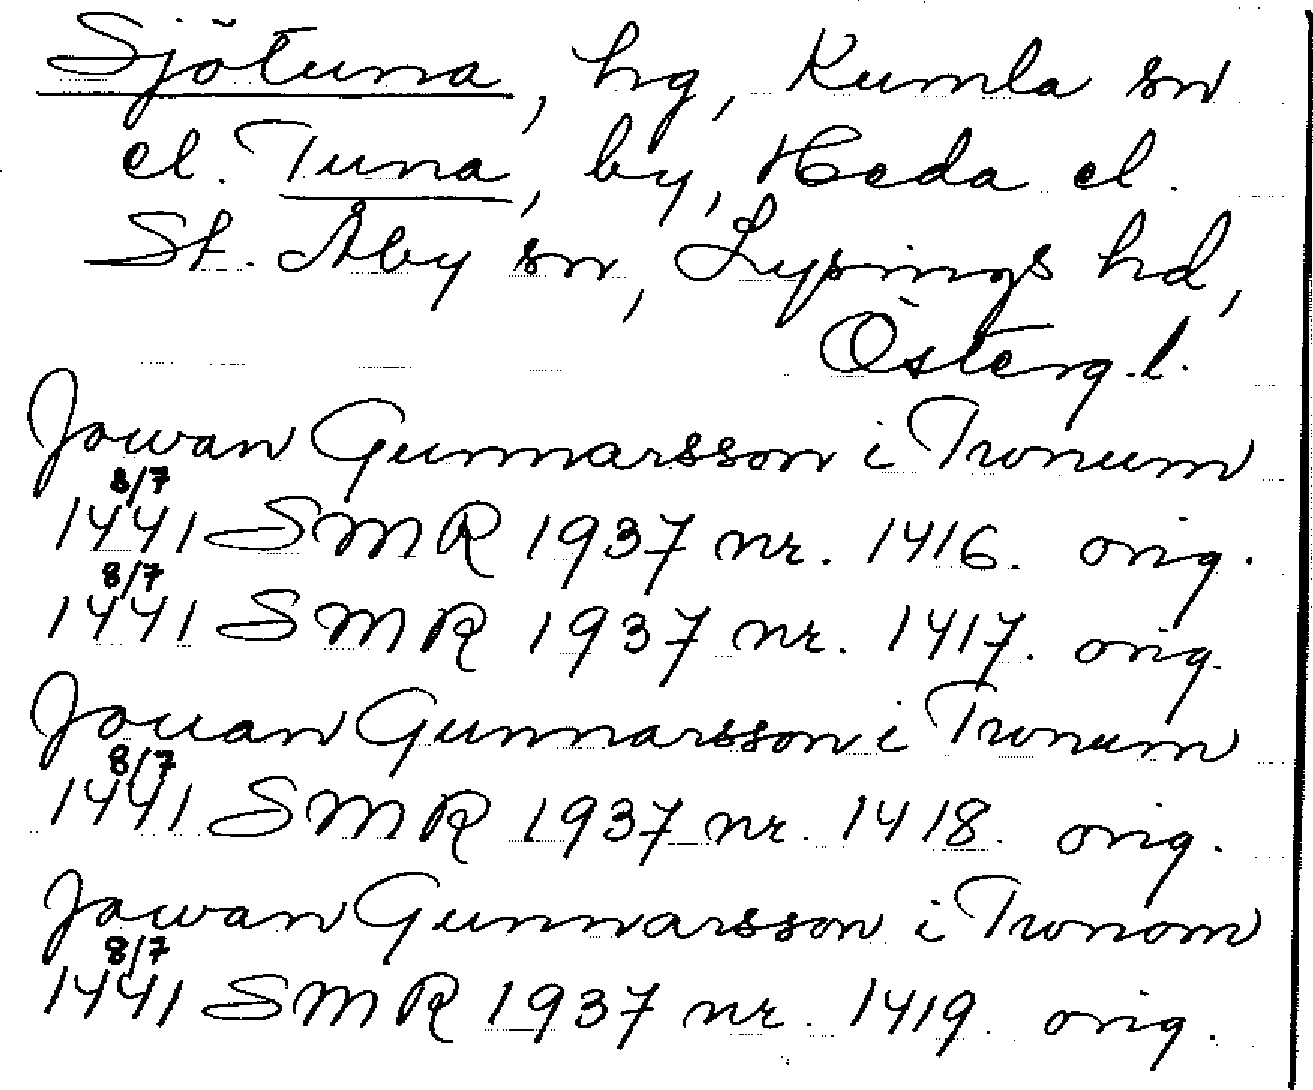 Sjötuna, hg, Kumla sn
el. Tuna, by, Heda el.
St. Åby sn, Lysings hd,
Österg.l.
Jowan Gunnarsson i Twnum
8/7
1441 SMR 1937 nr. 1416. orig.
8/7
1441 SMR 1937 nr. 1417. orig.
Jouan Gunnarsson i Twnum
8/7
1441 SMR 1937 nr. 1418. orig.
Jowan Gunnarsson i Twnom
8/7
1441 SMR 1937 nr. 1419. orig.